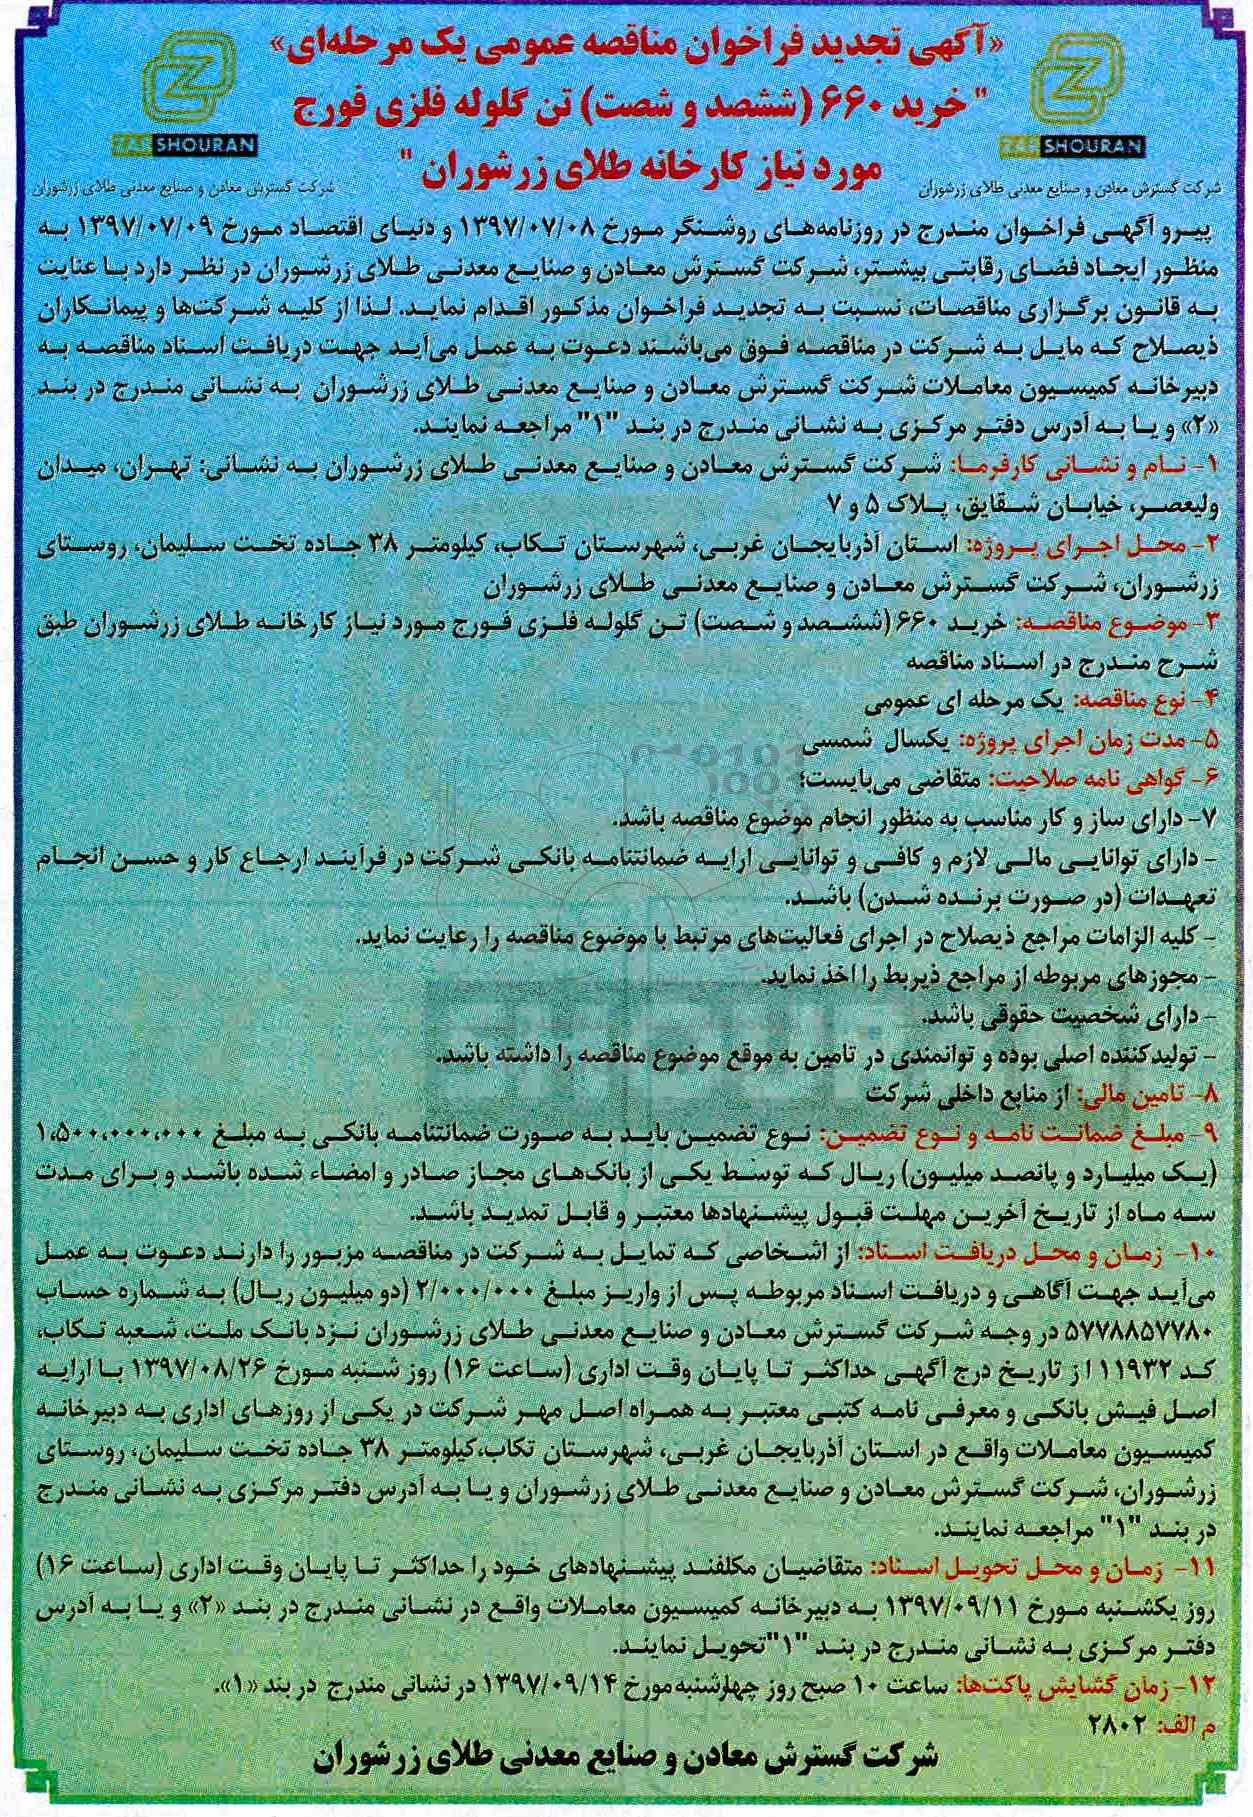 «آگهی تجدید فراخوان مناقصه عمومی یک مرحله‌ای»
"خرید ۶۶۰ (ششصد و شصت) تن گلوله فلزی فورج
مورد نیاز کارخانه طلای زرشوران"
ZAR SHOURAN
شرکت گسترش معادن و صنایع معدنی طلای زرشوران
ZAR SHOURAN
شرکت گسترش معادن و صنایع معدنی طلای زرشوران
پیرو آگهی فراخوان مندرج در روزنامه‌های روشنگر مورخ ۱۳۹۷/۰۷/۰۸ و دنیای اقتصاد مورخ ۱۳۹۷/۰۷/۰۹ به
منظور ایجاد فضای رقابتی بیشتر، شرکت گسترش معادن و صنایع معدنی طلای زرشوران در نظر دارد با عنایت
به قانون برگزاری مناقصات، نسبت به تجدید فراخوان مذکور اقدام نماید. لذا از کلیه شرکت‌ها و پیمانکاران
ذیصلاح که مایل به شرکت در مناقصه فوق می‌باشند دعوت به عمل می‌آید جهت دریافت اسناد مناقصه به
دبیرخانه کمیسیون معاملات شرکت گسترش معادن و صنایع معدنی طلای زرشوران به نشانی مندرج در بند
«۲» و یا به آدرس دفتر مرکزی به نشانی مندرج در بند "۱" مراجعه نمایند.
۱- نام و نشانی کارفرما: شرکت گسترش معادن و صنایع معدنی طلای زرشوران به نشانی: تهران، میدان
ولیعصر، خیابان شقایق، پلاک ۵ و ۷
۲- محل اجرای پروژه: استان آذربایجان غربی، شهرستان تکاب، کیلومتر ۳۸ جاده تخت سلیمان، روستای
زرشوران، شرکت گسترش معادن و صنایع معدنی طلای زرشوران
۳- موضوع مناقصه: خرید ۶۶۰ (ششصد و شصت) تن گلوله فلزی فورج مورد نیاز کارخانه طلای زرشوران طبق
شرح مندرج در اسناد مناقصه
۴- نوع مناقصه: یک مرحله ای عمومی
۵- مدت زمان اجرای پروژه: یکسال شمسی
۶- گواهی نامه صلاحیت: متقاضی می‌بایست؛
۷- دارای ساز و کار مناسب به منظور انجام موضوع مناقصه باشد.
- دارای توانایی مالی لازم و کافی و توانایی ارایه ضمانتنامه بانکی شرکت در فرآیند ارجاع کار و حسن انجام
تعهدات (در صورت برنده شدن) باشد.
- کلیه الزامات مراجع ذیصلاح در اجرای فعالیت‌های مرتبط با موضوع مناقصه را رعایت نماید.
- مجوزهای مربوطه از مراجع ذیربط را اخذ نماید.
- دارای شخصیت حقوقی باشد.
- تولیدکننده اصلی بوده و توانمندی در تامین به موقع موضوع مناقصه را داشته باشد.
۸- تامین مالی: از منابع داخلی شرکت
۹- مبلغ ضمانت نامه و نوع تضمین: نوع تضمین باید به صورت ضمانتنامه بانکی به مبلغ ۱،۵۰۰،۰۰۰،۰۰۰
(یک میلیارد و پانصد میلیون) ریال که توسط یکی از بانک‌های مجاز صادر و امضاء شده باشد و برای مدت
سه ماه از تاریخ آخرین مهلت قبول پیشنهادها معتبر و قابل تمدید باشد.
۱۰- زمان و محل دریافت اسناد: از اشخاصی که تمایل به شرکت در مناقصه مزبور را دارند دعوت به عمل
می‌آید جهت آگاهی و دریافت اسناد مربوطه پس از واریز مبلغ ۲/۰۰۰/۰۰۰ (دو میلیون ریال) به شماره حساب
۵۷۷۸۸۵۷۷۸۰ در وجه شرکت گسترش معادن و صنایع معدنی طلای زرشوران نزد بانک ملت، شعبه تکاب،
کد ۱۱۹۳۲ از تاریخ درج آگهی حداکثر تا پایان وقت اداری (ساعت ۱۶) روز شنبه مورخ ۱۳۹۷/۰۸/۲۶ با ارایه
اصل فیش بانکی و معرفی نامه کتبی معتبر به همراه اصل مهر شرکت در یکی از روزهای اداری به دبیرخانه
کمیسیون معاملات واقع در استان آذربایجان غربی، شهرستان تکاب،کیلومتر ۳۸ جاده تخت سلیمان، روستای
زرشوران، شرکت گسترش معادن و صنایع معدنی طلای زرشوران و یا به آدرس دفتر مرکزی به نشانی مندرج
در بند "۱" مراجعه نمایند.
۱۱- زمان و محل تحویل اسناد: متقاضیان مکلفند پیشنهادهای خود را حداکثر تا پایان وقت اداری (ساعت ۱۶)
روز یکشنبه مورخ ۱۳۹۷/۰۹/۱۱ به دبیرخانه کمیسیون معاملات واقع در نشانی مندرج در بند «۲» و یا به آدرس
دفتر مرکزی به نشانی مندرج در بند "۱"تحویل نمایند.
۱۲- زمان گشایش پاکت‌ها: ساعت ۱۰ صبح روز چهارشنبه مورخ ۱۳۹۷/۰۹/۱۴ در نشانی مندرج در بند «۱».
م الف: ۲۸۰۲
شرکت گسترش معادن و صنایع معدنی طلای زرشوران